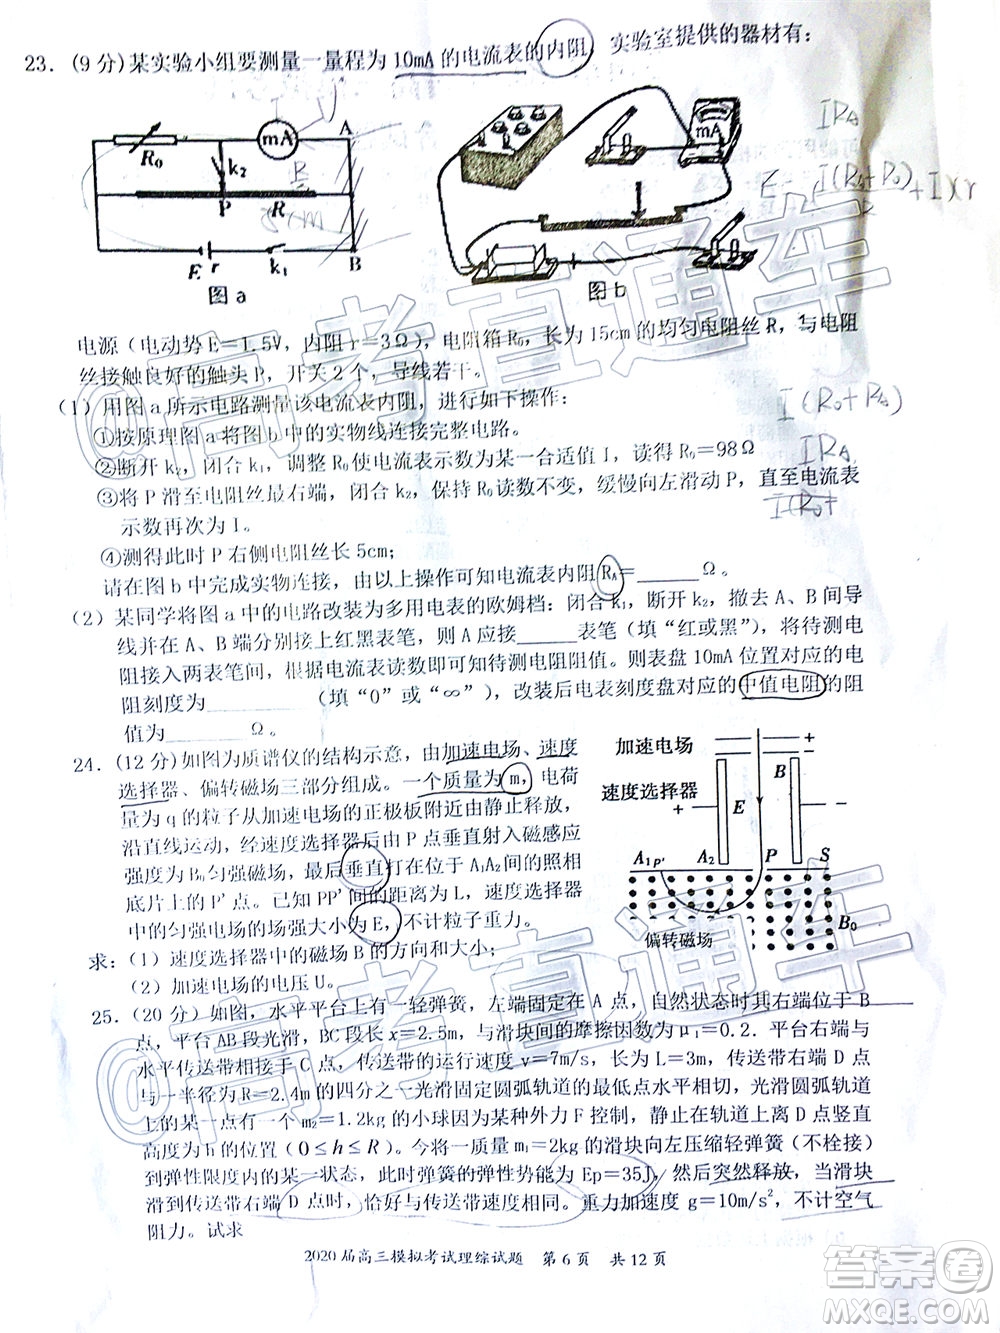 23．(9 分)某实验小组要测量一量程为 10mA 的电流表的内阻，实验室提供的器材有：
mA
A
R₀
k₂
P
R
E
r
k₁
B
图 a
mA
图 b
电源（电动势 E＝1.5V，内阻 r＝3Ω），电阻箱 R₀，长为 15cm 的均匀电阻丝 R，与电阻
丝接触良好的触头 P，开关 2 个，导线若干。
（1）用图 a 所示电路测量该电流表内阻，进行如下操作：
①按原理图 a 将图 b 中的实物线连接完整电路。
②断开 k₂，闭合 k₁，调整 R₀ 使电流表示数为某一合适值 I，读得 R₀＝98Ω
③将 P 滑至电阻丝最右端，闭合 k₂，保持 R₀ 读数不变，缓慢向左滑动 P，直至电流表
示数再次为 I。
④测得此时 P 右侧电阻丝长 5cm；
请在图 b 中完成实物连接，由以上操作可知电流表内阻 R_A＝______Ω。
（2）某同学将图 a 中的电路改装为多用电表的欧姆档：闭合 k₁，断开 k₂，撤去 A、B 间导
线并在 A、B 端分别接上红黑表笔，则 A 应接______表笔（填“红或黑”），将待测电阻
接入两表笔间，根据电流表读数即可得待测电阻阻值。则表盘 10mA 位置对应的电
阻刻度为________（填“0”或“∞”），改装后电表刻度盘对应的中值电阻的阻
值为______Ω。
24．(12 分)如图为质谱仪的结构示意，由加速电场、速度
选择器、偏转磁场三部分组成。一个质量为 m，电荷
量为 q 的粒子从加速电场的正极板附近由静止释放，
沿直线运动，经速度选择器后由 P 点垂直射入磁感应
强度为 B₀ 匀强磁场，最后垂直打在位于 A₁A₂ 间的照相
底片上的 P' 点。已知 PP' 间的距离为 L，速度选择器
中的匀强电场的场强大小为 E，不计粒子重力。
求：（1）速度选择器中的磁场 B 的方向和大小；
（2）加速电场的电压 U。
加速电场
＋
－
速度选择器
＋
E
B
－
A₁
P'
A₂
P
S
B₀
偏转磁场
25．（20 分）如图，水平平台上有一轻弹簧，左端固定在 A 点，自然状态时其右端位于 B
点，平台 AB 段光滑，BC 段长 x＝2.5m，与滑块间的摩擦因数为 μ₁＝0.2．平台右端与水
平传送带相接于 C 点，传送带的运行速度 v＝7m/s，长为 L＝3m，传送带右端 D 点
与一半径为 R＝2m 的四分之一光滑固定圆弧轨道的最低点水平相切，光滑圆弧轨道上
的某一点有一个 m₂＝1.2kg 的小球因为某种外力 F 控制，静止在轨道上离 D 点竖直
高度为 h（0≤h≤R）。今将一质量 m₁＝2kg 的滑块向左压缩轻弹簧（不栓接）
到弹性限度内的某一状态，此时弹簧的弹性势能为 Ep＝35J，然后突然释放，当滑块
滑到传送带右端 D 点时，恰好与传送带速度相同。重力加速度 g＝10m/s²，不计空气
阻力。试求
2020 届高三模拟考试理综试题　第 6 页　共 12 页
@高考直通车
答案圈
MXQE.COM